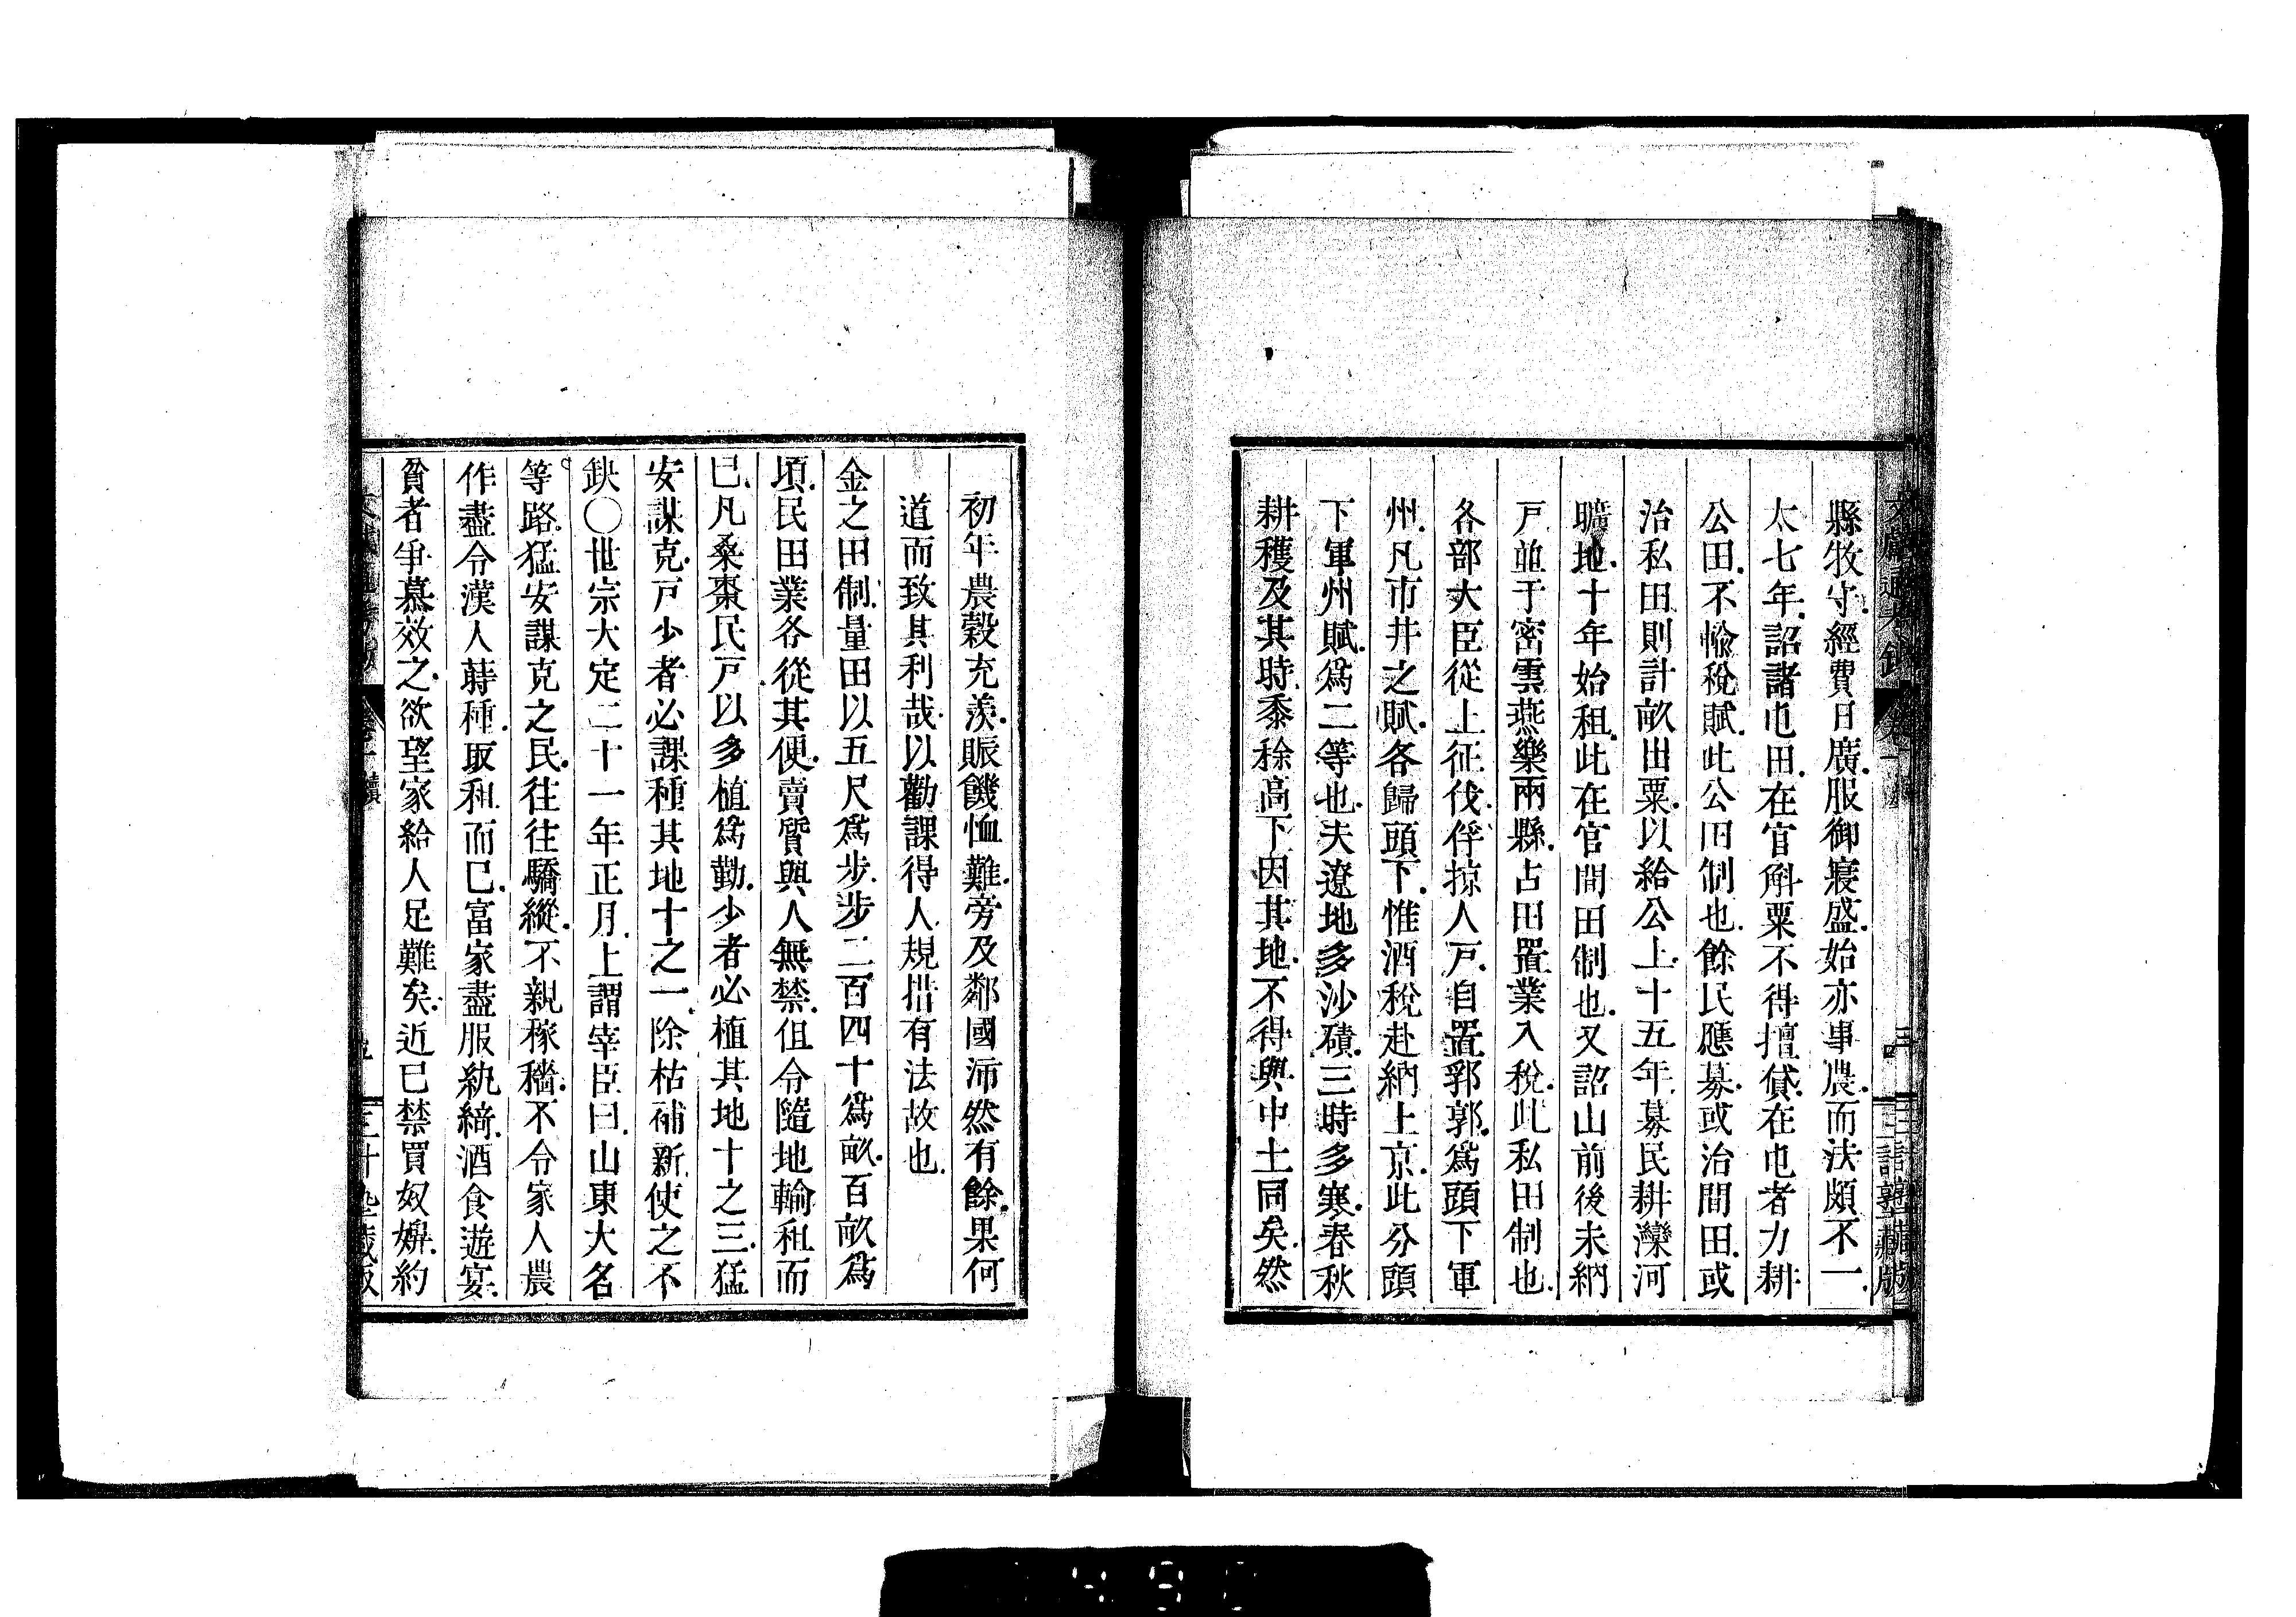 縣牧守經費日廣服御寢盛始亦事農而法頗不一
太七年詔諸屯田在官斛粟不得擅貸在屯者力耕
公田不輸稅賦此公田制也餘民應募或治閒田或
治私田則計畝出粟以給公上十五年募民耕灤河
曠地十年始租此在官閒田制也又詔山前後未納
戸並于密雲燕樂兩縣占田置業入稅此私田制也
各部大臣從上征伐俘掠人戸自置郛郭爲頭下軍
州凡市井之賦各歸頭下惟酒稅赴納上京此分頭
下軍州賦爲二等也夫遼地多沙磧三時多寒春秋
耕穫及其時黍稌高下因其地不得與中土同矣然
初年農穀充羨賑饑恤難旁及鄰國沛然有餘果何
道而致其利哉以勸課得人規措有法故也
金之田制量田以五尺爲步步二百四十爲畝百畝爲
頃民田業各從其便賣質與人無禁但令隨地輸租而
已凡桑棗民戸以多植爲勤少者必植其地十之三猛
安謀克戸少者必課種其地十之一除枯補新使之不
缺〇世宗大定二十一年正月上謂宰臣曰山東大名
等路猛安謀克之民往往驕縱不親稼穡不令家人農
作盡令漢人蒔種取租而已富家盡服紈綺酒食遊宴
貧者爭慕效之欲望家給人足難矣近已禁買奴婢約